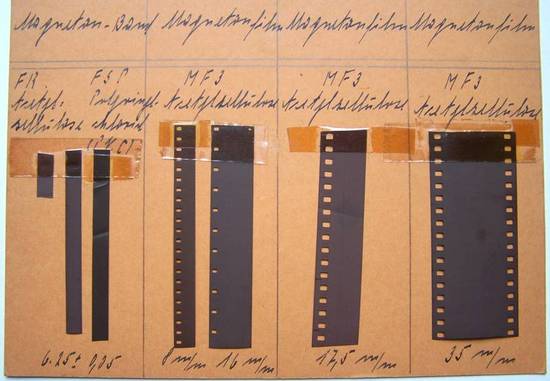 Magneton-Band
Magnetonfilm
Magnetonfilm
Magnetonfilm
FR
Acetyl-
zellulose
FSP
Polyvinyl
chlorid
(PVC)
MF3
Acetylzellulose
MF3
Acetylzellulose
MF3
Acetylzellulose
6.25 ± 0,05
8 m/m
16 m/m
17,5 m/m
35 m/m